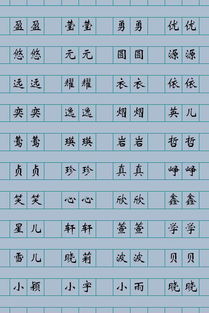 盈盈 莹莹 勇勇 优优
悠悠 元元 圆圆 源源
远远 耀耀 衣衣 依依
奕奕 逸逸 熠熠 英儿
莺莺 瑛瑛 岩岩 哲哲
贞贞 珍珍 真真 峥峥
笑笑 心心 欣欣 鑫鑫
星儿 轩轩 萱萱 学学
雪儿 晓莉 波波 贝贝
小颖 小宇 小雨 晓晓